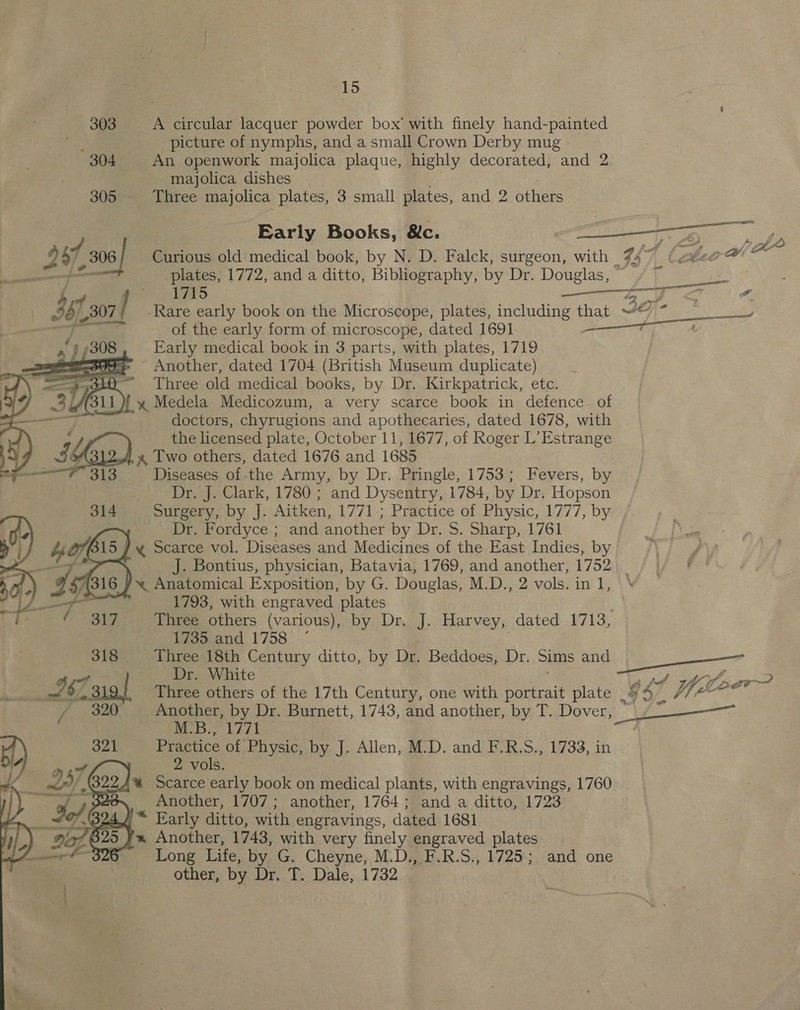 15
303 A circular lacquer powder box with finely hand-painted
picture of nymphs, and a small Crown Derby mug
304 An openwork majolica plaque, highly decorated, and 2
majolica dishes
305 Three majolica plates, 3 small plates, and 2 others
Early Books, &c.
306 Curious old medical book, by N. D. Falck, surgeon, with
plates, 1772, and a ditto, Bibliography, by Dr. Douglas,
1715
307 Rare early book on the Microscope, plates, including that
of the early form of microscope, dated 1691
308 Early medical book in 3 parts, with plates, 1719
309 Another, dated 1704 (British Museum duplicate)
310 Three old medical books, by Dr. Kirkpatrick, etc.
311 x Medela Medicozum, a very scarce book in defence of
doctors, chyrugions and apothecaries, dated 1678, with
the licensed plate, October 11, 1677, of Roger L'Estrange
312 x Two others, dated 1676 and 1685
313 Diseases of the Army, by Dr. Pringle, 1753; Fevers, by
Dr. J. Clark, 1780; and Dysentry, 1784, by Dr. Hopson
314 Surgery, by J. Aitken, 1771; Practice of Physic, 1777, by
Dr. Fordyce; and another by Dr. S. Sharp, 1761
315 x Scarce vol. Diseases and Medicines of the East Indies, by
J. Bontius, physician, Batavia, 1769, and another, 1752
316 x Anatomical Exposition, by G. Douglas, M.D., 2 vols. in 1,
1793, with engraved plates
317 Three others (various), by Dr. J. Harvey, dated 1713,
1735 and 1758
318 Three 18th Century ditto, by Dr. Beddoes, Dr. Sims and
Dr. White
319 Three others of the 17th Century, one with portrait plate
320 Another, by Dr. Burnett, 1743, and another, by T. Dover,
M.B., 1771
321 Practice of Physic, by J. Allen, M.D. and F.R.S., 1733, in
2 vols.
322 x Scarce early book on medical plants, with engravings, 1760
323 Another, 1707; another, 1764; and a ditto, 1723
324 x Early ditto, with engravings, dated 1681
325 x Another, 1743, with very finely engraved plates
326 Long Life, by G. Cheyne, M.D., F.R.S., 1725; and one
other, by Dr. T. Dale, 1732